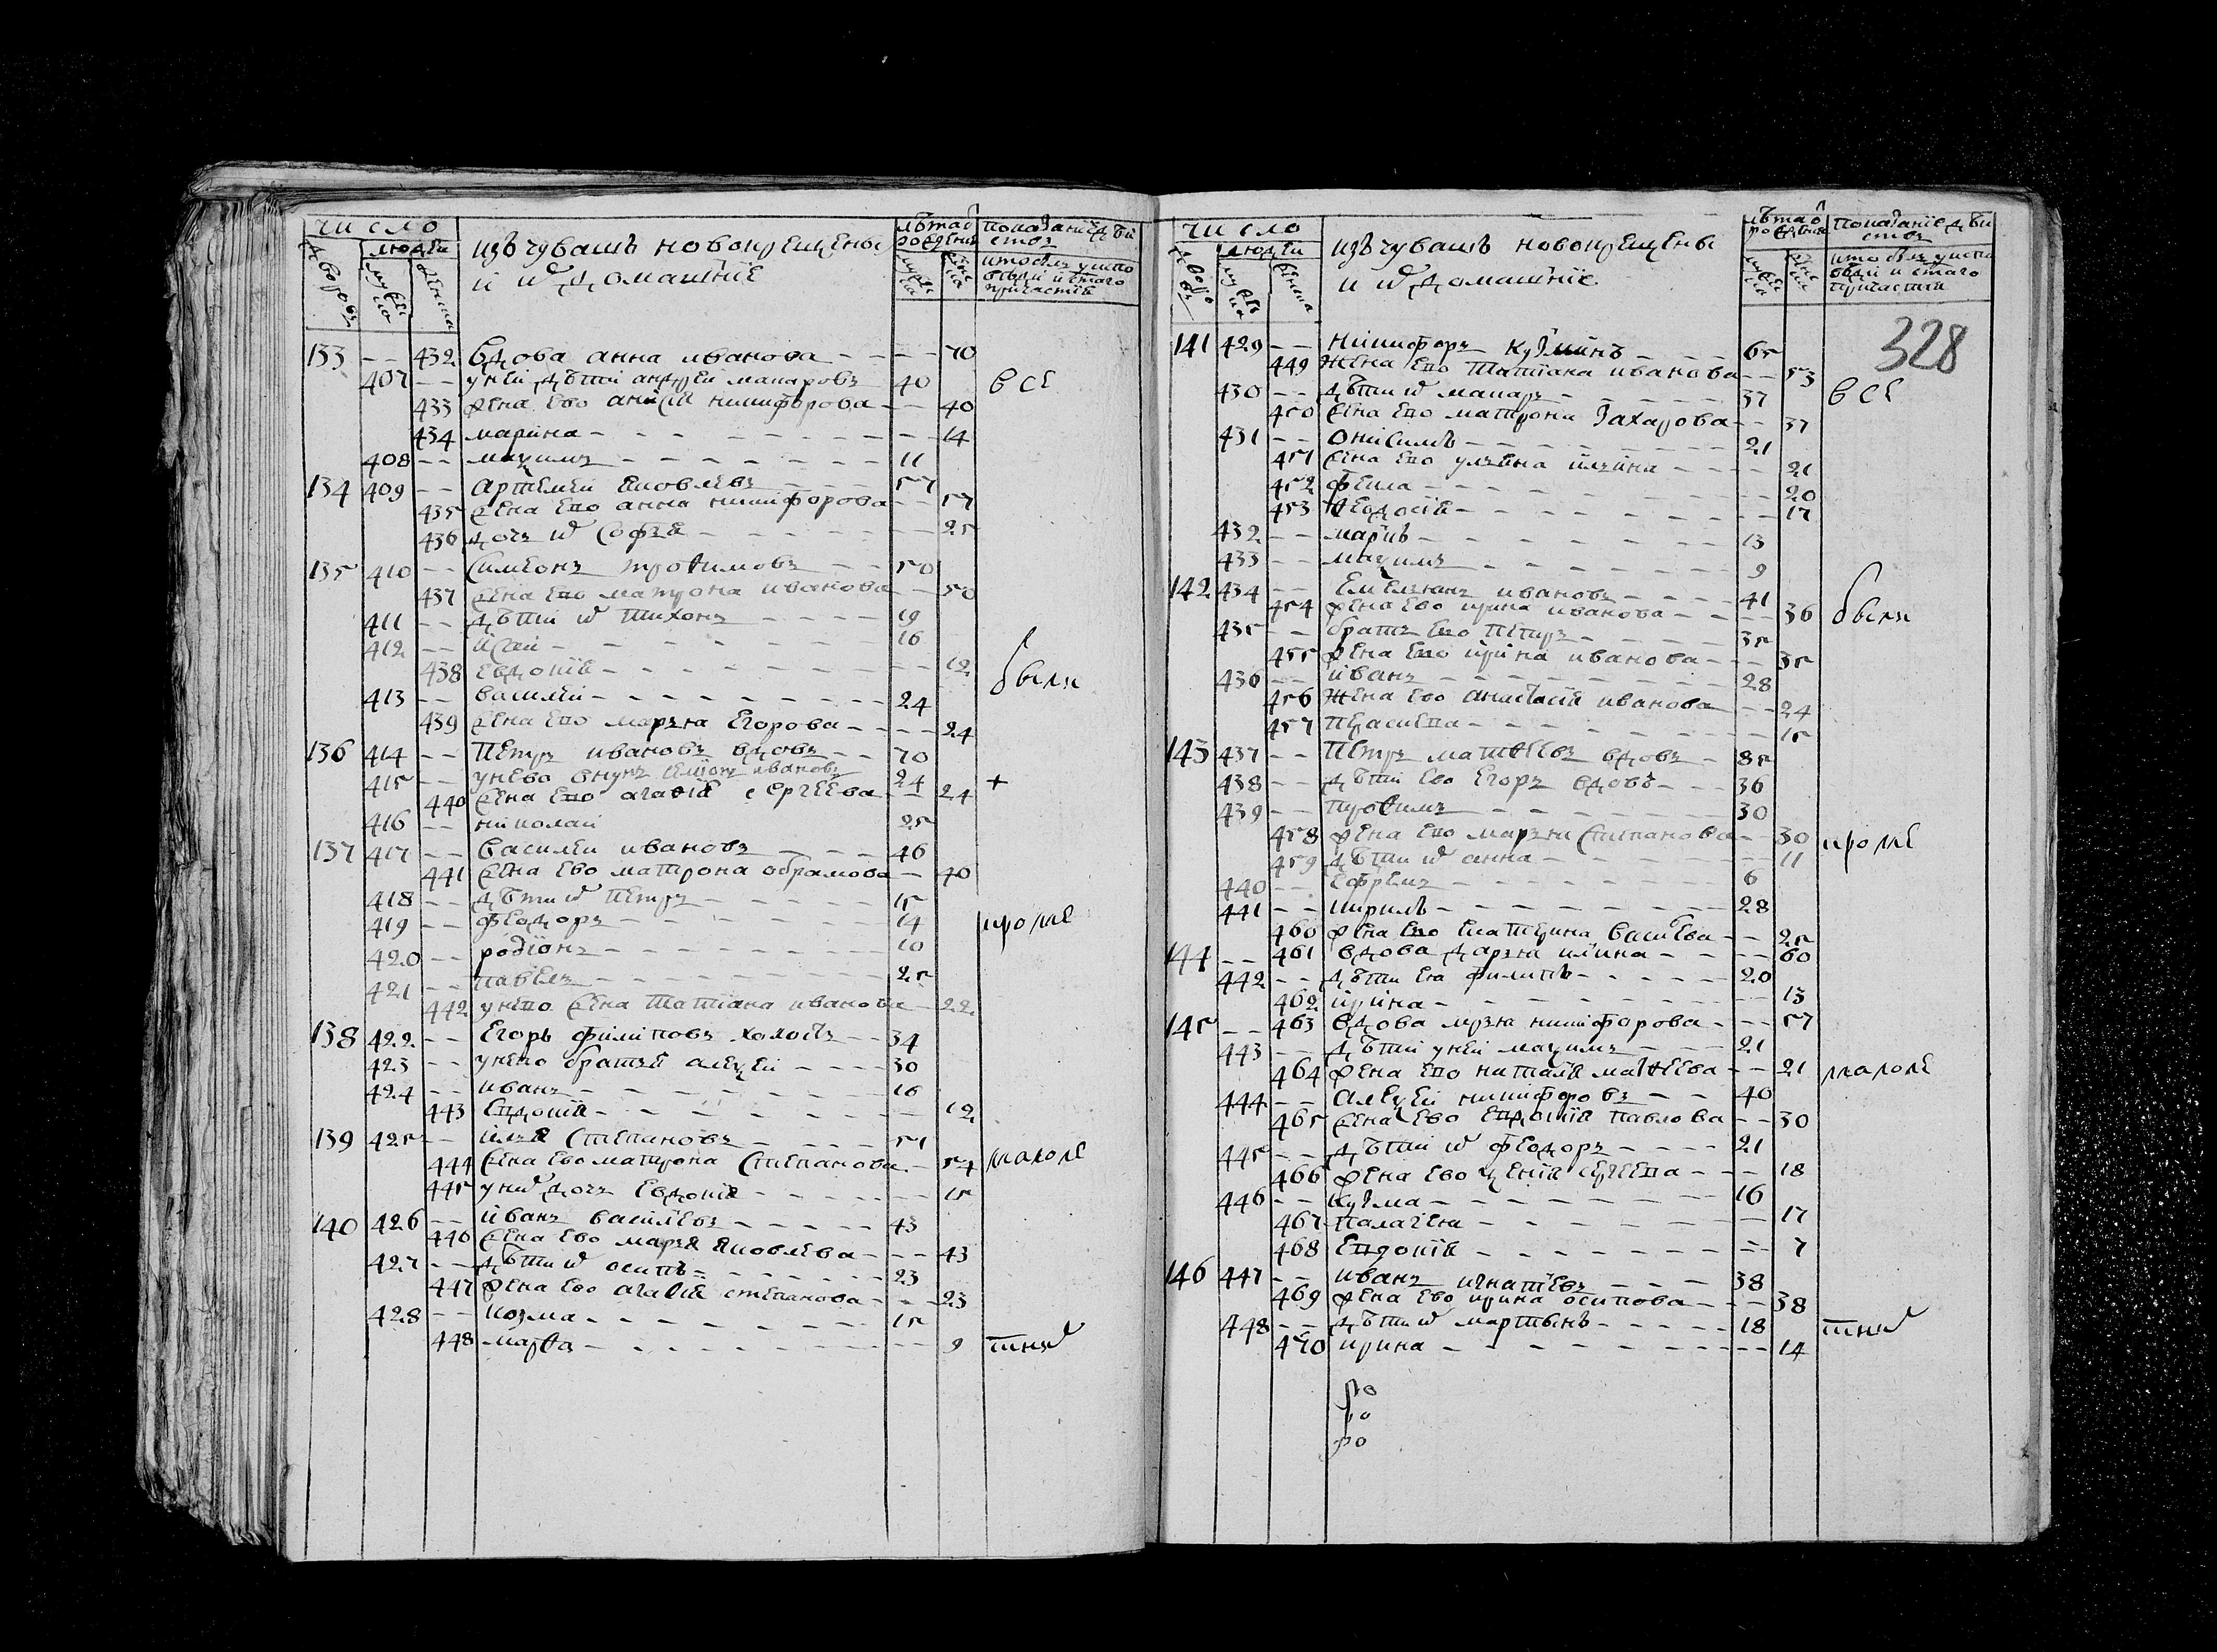 число
людей
дворовъ
мужеска
женска
изъ чувашъ новокрещены
и ихъ домашніе
лѣта о рожденіи
мужеска
женска
показаніе дѣйство
кто былъ у исповѣди и свтаго причастія
133 -- 432 вдова анна иванова ---- 70
407 -- у ней дѣти андрей макаровъ 40 все
433 жена ево анисія никифорова -- 40
434 марина ---- 14
408 -- маѯимъ ---- 11
134 409 -- артемей яковлевъ ---- 57
435 жена ево анна никифорова -- 57
436 дочь их софья ---- 25
135 410 -- симеонъ трофимовъ -- 50
437 жена ево матрона иванова -- 50
411 -- дѣти их тихонъ ---- 19
412 -- исай ---- 16
438 евдокія ---- 12 были
413 -- василей ---- 24
439 жена ево марья егорова ---- 24
136 414 -- петръ ивановъ вдовъ -- 70
415 -- у нево внукъ семіонъ ивановъ 24 +
440 жена ево агафія сергеева -- 24
416 -- николай 25
137 417 -- василей ивановъ ---- 46
441 жена ево матрона обрамова -- 40
418 -- дѣти их петръ ---- 15
419 -- феодоръ ---- 14 кроме
420 -- родіонъ ---- 10
421 -- павелъ ---- 25
442 у нево жена татіана иванова -- 22
138 422 -- егоръ филиповъ холостъ -- 34
423 -- у нево братья алеѯей ---- 30
424 -- иванъ ---- 16
443 евдокія ---- 12
139 425 -- илья степановъ ---- 51
444 жена ево матрона степанова -- 54 малоле
445 у них дочь евдокія ---- 15
140 426 -- иванъ василевъ ---- 43
446 жена ево марья яковлева ---- 43
427 -- дѣти их осипъ ---- 23
447 жена ево агафія степанова ---- 23
428 -- козма ---- 15
448 марѳа ---- 9 тних
число
людей
дворовъ
мужеска
женска
изъ чувашъ новокрещены
и ихъ домашніе
лѣта о рожденіи
мужеска
женска
показаніе дѣйство
кто былъ у исповѣди и свтаго причастія
328
141 429 -- никифоръ кузминъ ---- 65
449 жена ево татіана иванова -- 53
430 -- дѣти их макаръ ---- 37 все
450 жена ево матрона захарова -- 37
431 -- онисимъ ---- 21
451 жена ево ульяна ильина ---- 21
452 фекла ---- 20
453 ѳеодосія ---- 17
432 -- маркъ ---- 13
433 -- маѯимъ ---- 9
142 434 -- емельянъ ивановъ ---- 41
454 жена ево ирина иванова ---- 36 были
435 -- братъ ево петръ ---- 35
455 жена ево ирина иванова ---- 35
436 -- иванъ ---- 28
456 жена ево анастасія иванова -- 24
457 прасковя ---- 15
143 437 -- петръ матвѣевъ вдовъ -- 85
438 -- дѣти ево егоръ вдовъ ---- 36
439 -- трофимъ ---- 30
458 жена ево марья степанова -- 30 кроме
459 дѣти их анна ---- 11
440 -- ефремъ ---- 6
441 -- кирилъ ---- 28
460 жена ево екатерина василева -- 25
144 -- 461 вдова дарья илина ---- 60
442 -- дѣти ея филипъ ---- 20
462 ирина ---- 13
145 -- 463 вдова мрья никифорова ---- 57
443 -- дѣти у ней маѯимъ ---- 21
464 жена ево наталя матѳеева -- 21 малоле
444 -- алеѯей никифоровъ -- 40
465 жена ево евдокія павлова -- 30
445 -- дѣти их феодоръ ---- 21
466 жена ево ѯенія сергеева ---- 18
446 -- кузма ---- 16
467 палагея ---- 17
468 евдокія ---- 7
146 447 -- иванъ игнатіевъ ---- 38
469 жена ево ирина осипова ---- 38
448 -- дѣти их мартынъ ---- 18 тних
470 ирина ---- 14